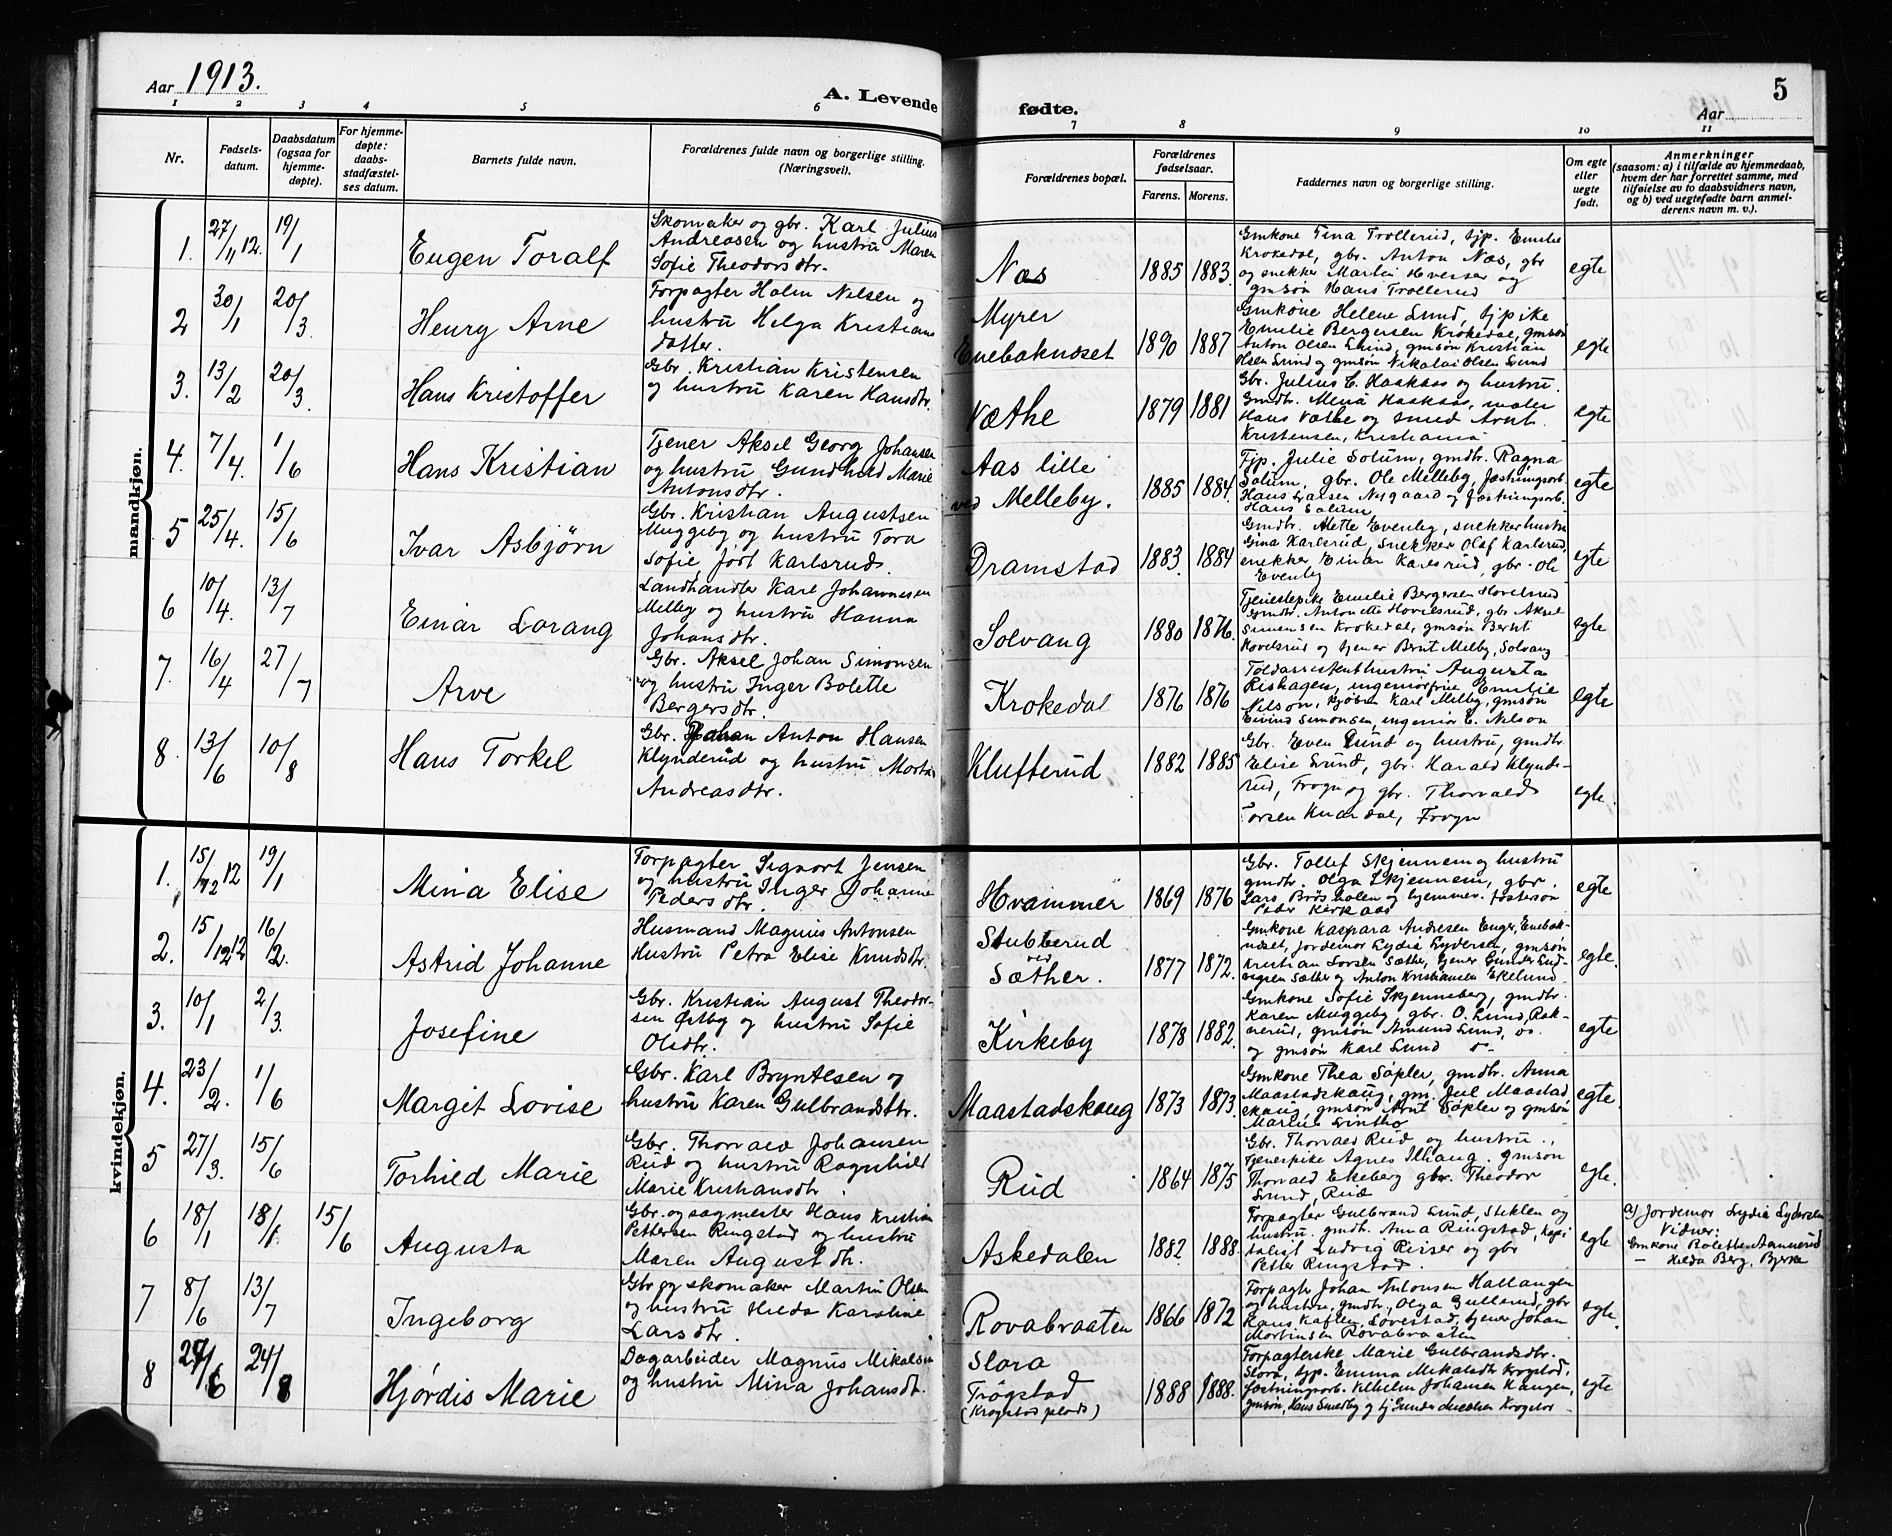 Aar 1913.
A. Levende
fødte.
5
Aar
1 2 3 4 5 6 7 8 9 10 11
Nr.
Fødsels-
datum.
Daabsdatum
(ogsaa for
hjemme-
døpte).
For hjemme-
døpte:
daabs-
stadfæstel-
ses datum.
Barnets fulde navn.
Forældrenes fulde navn og borgerlige stilling.
(Næringsvei).
Forældrenes bopæl.
Forældrenes
fødselsaar.
Farens. Morens.
Faddernes navn og borgerlige stilling.
Om egte
eller
uegte
født.
Anmerkninger
(saasom: a) i tilfælde av hjemmedaab,
hvem der har forrettet samme, med
tilføielse av to daabsvidners navn,
og b) ved uegtefødte barn anmel-
derens navn m. v.).
mandkjøn.
1. 27/11 12. 19/1
Eugen Toralf
Skomaker og gbr. Karl Julius
Andreasen og hustru Maren
Sofie Theodorsdtr.
Næs
1885 1883.
Gmkone Tina Trollerud, tjp. Emilie
Krokedal, gbr. Anton Næs, gbr
og snekker Martin Hversser og
gmsøn Hans Trollerud
egte
2 30/1 20/3.
Henry Arne
Forpagter Holm Nilsen og
hustru Helga Kristians
datter.
Myrer
Enebaknæset
1890 1887
Gmkone Helene Lund, tjpike
Emilie Bergersen Krokedal, gmsøn
Anton Olsen Lund, gmsøn Kristian
Olsen Lund og gmsøn Nikolai Olsen Lund
egte
3. 13/2 20/3.
Hans Kristoffer
Gbr. Kristian Kristensen
og hustru Karen Hansdtr.
Væthe
1879 1881
Gbr. Julius C. Haakaas og hustru.
Gmdtr. Mena Haakaas, maler
Hans Væthe og smed Arnt
Kristensen, Kristiania
egte
4. 7/4. 1/6
Hans Kristian
Tjener Aksel Georg Johansen
og hustru Gundhild Marie
Antonsdtr.
Aas lille
ved Melleby.
1885 1884.
Tjp. Julie Solum, gmdtr. Ragna
Solum, gbr. Ole Melleby, fæstningsarb.
Hans Larsen Nysgaard og fæstningsarb.
Hans Solum
egte
5 25/4. 15/6
Ivar Asbjørn
Gbr. Kristian Augustsen
Muggeby og hustru Tora
Sofie, født Karlsrud.
Dramstad
1883. 1884
Gmdtr. Alette Evenby, snekkerhustru
Gina Karlsrud, snekker Olaf Karlsrud,
snekker Einar Karlsrud, gbr. Ole
Evenby
egte
6 10/4. 13/7
Einar Lorang
Landhandler Karl Johannesen
Melby og hustru Hanna
Johansdtr.
Solvang
1880 1876.
Tjenestepike Emilie Bergersen Hovelsrud
gmdtr. Antonette Hovelsrud, gbr. Aksel
Simensen Krokedal, gmsøn Bernt
Hovelsrud og tjener Bernt Melby, Solvang
egte
7. 16/4 27/7
Arve
Gbr. Aksel Johan Simonsen
og hustru Inger Bolette
Bergersdtr.
Krokedal
1876 1876
Toldassistenthustru Augusta
Rishagen, ingeniørfrue Emilie
Nilson, kjøbm. Karl Melby, gmsøn
Eivind Simonsen, ingeniør E. Nilson
egte
8. 13/6 10/8
Hans Torkel
Gbr. Johan Anton Hansen
Klynderud og hustru Morta
Andreasdtr.
Klufterud
1882 1885
Gbr. Even Lund og hustru, gmdtr
Elise Lund, gbr. Harald Klynde-
rud, Frogn og gbr. Thorvald
Torsen Knardal, Frogn
egte.
kvindekjøn.
1. 15/12 12 19/1
Mina Elise
Forpagter Sigvart Jensen
og hustru Inger Johanne
Pedersdtr.
Hvammer
1869 1876
Gbr. Tollef Skjennem og hustru
gmdtr. Olga Skjennem, gbr.
Lars Brøsholen og hjemmev. fostersøn
Peder Kirkaas
egte
2. 15/12 12 16/2.
Astrid Johanne
Husmand Magnus Antonsen
Hustru Petra Elise Knudsdtr.
Stubberud
ved
Sæther.
1877 1872.
Gmkone Kaspara Andresen Enger, Enebak-
næset, jordemor Lydia Lydersen, gmsøn
Kristian Larsen Sæther, tjener Gunder Lud-
vigsen Sæther og Anton Kristiansen Ekelund
egte.
3. 10/1 2/3.
Josefine
Gbr. Kristian August Theodor-
sen Østby og hustru Sofie
Olsdtr.
Kirkeby
1878 1882.
Gmkone Sofie Skjenneberg, gmdtr.
Karen Muggeby gbr. O. Lund, Rak-
nerud, gmsøn Amund Lund, os.
og gmsøn Karl Lund
egte
4. 23/2. 1/6
Margit Lovise
Gbr. Karl Bryntlsen og
hustru Karen Gulbrandsdtr.
Maastadskaug
1873 1873.
Gmkone Thea Søpler, gmdtr. Anna
Maastadskaug, gm. Jul Maastad
skaug, gmsøn Arnt Søpler og gmsøn
Marius Lintho
egte.
5 27/3. 15/6
Torhild Marie
Gbr. Thorvald Johansen
Rud og hustru Ragnhild
Marie Kristiansdtr.
Rud
1864 1875
Gbr. Thorvald Rud og hustru.,
Tjenerpike Agnes Ilhaug. gmsøn
Thorvald Ekeberg gbr. Theodor
Lund, Rud
egte.
6 18/1 18/1. 15/6
Augusta
Gbr. og sagmester Hans Kristian
Pettersen Ringstad og hustru
Maren August dtr.
Askedalen
1882. 1888.
Forpagter Gulbrand Lund, Stiklen og
hustru. gmdtr. Anna Ringstad, kapi
talist Ludvig Reiser og gbr
Petter Ringstad.
egte
a) Jordemor Lydia Lydersen
Vidner:
Gmkone Bolette Aannerud
— Hilda Berg, Bjerke
7 8/6 13/7
Ingeborg
Gbr og skomaker Martin Olsen
og hustru Hilda Karoline
Larsdtr.
Rovabraaten
1866 1872
Forpagtr Johan Antonsen Hallangen
og hustru, gmdtr. Olga Gullerud, gbr
Hans Kaflen, Lovestad, tjener Johan
Martinsen Rovabraaten
egte.
8 27/6 24/8
Hjørdis Marie
Dagarbeider Magnus Mikalsen
og hustru Mina Johansdt.
Slora
Trøgstad
(Krogstad plads)
1888 1888.
Forpagterske Marie Gulbrandsdtr.
Slora, tjp. Emma Mikalsdtr Krogstad,
fæstningsarb. Vilhelm Johansen Haugen,
gmsøn, Hans Smedby og tj Gunder Mikalsen Krogstad
egte